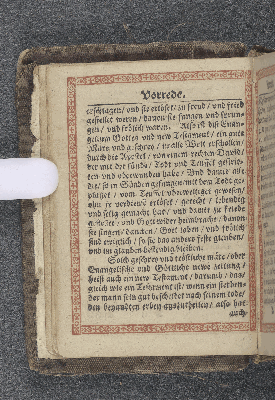 Vorrede.
erschlagen / vnd sie erlöset / zu freud / vnd fried
gestellet weren / dauon sie sungen vnd sprun-
gen / vnd frölich waren. Also ist diß Euan-
gelium Gottes vnd new Testament / ein gute
Mehr vnd geschrey / in alle Welt erschollen /
durch die Apostel / von einem rechten Dauid /
der mit der sünde / Todt vnd Teuffel gestrit-
ten vnd vberwunden habe / Vnd damit alle
die / so in Sünden gefangen mit dem Todt ge-
plaget / vom Teuffel vberweltiget gewesen /
ohn jr verdienst erlöset / gerecht / lebendig
vnd selig gemacht hat / vnd damit zu friede
gestellet / vnd Gott wider heimbracht / dauon
sie singen / dancken / Gott loben / vnd frölich
sind ewiglich / so sie das anders feste gleuben /
vnd im glauben bestendig bleiben.
Solch geschrey vnd tröstliche märe / oder
Euangelische vnd Göttliche newe zeitung /
heist auch ein new Testament / darumb / das
gleich wie ein Testament ist / wenn ein sterben-
der mann sein gut bescheidet nach seinem tode /
den benandten erben auszutheilen / also hat
auch